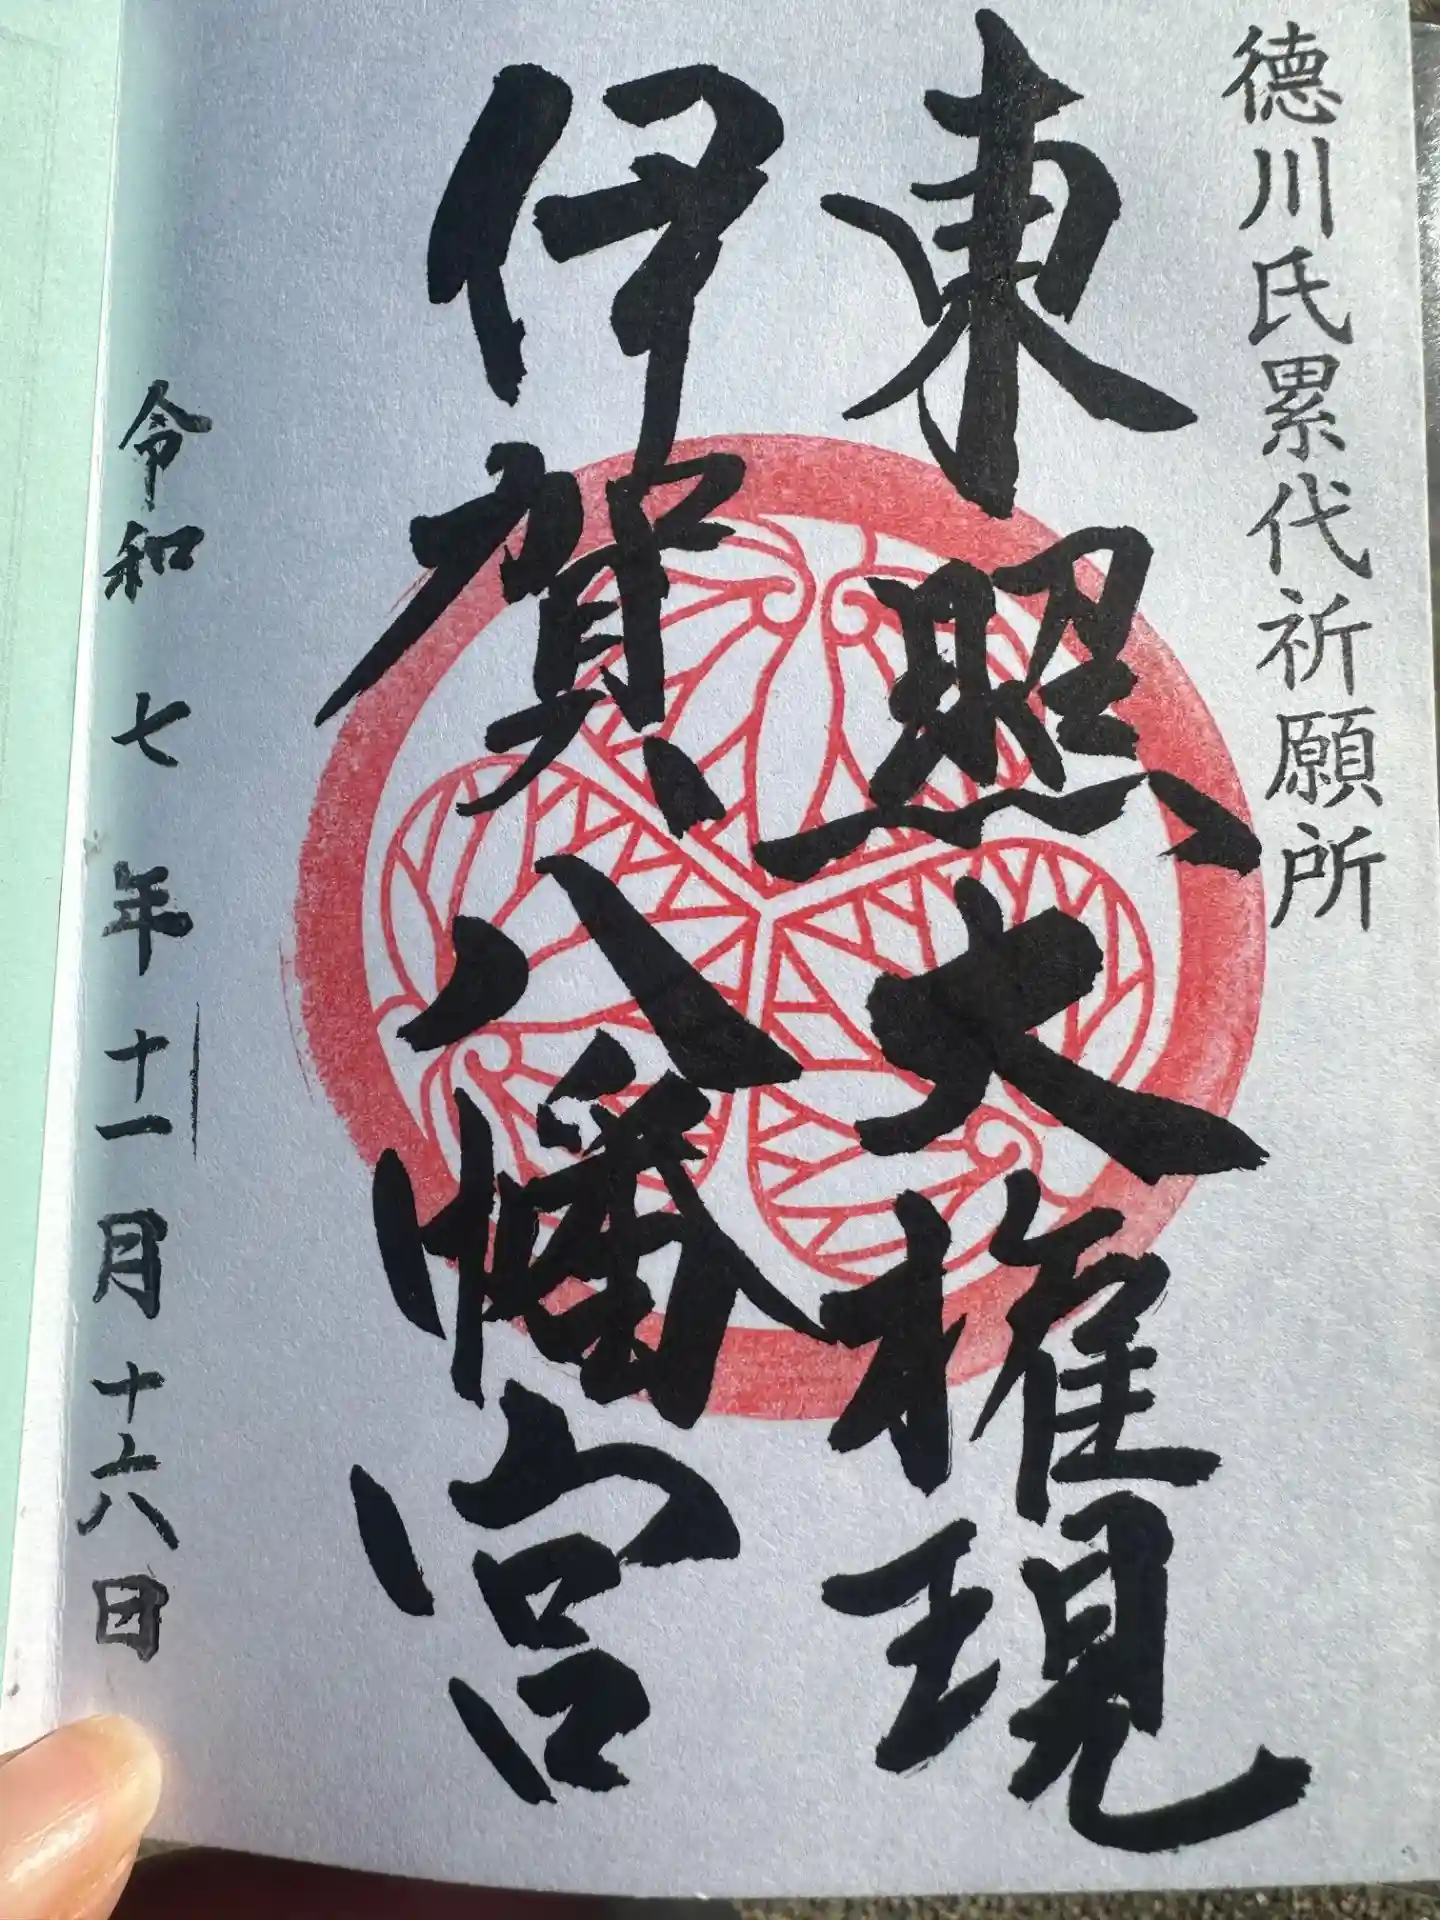 德川氏累代祈願所
東照大権現
伊賀八幡宮
令和七年十一月十六日